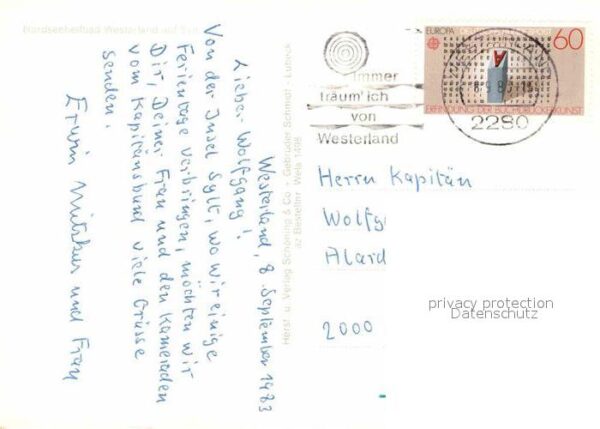 Nordseeheilbad Westerland auf Sylt
Westerland, 8. September 1983
Lieber Wolfgang!
Von der Insel Sylt, wo wir einige
Ferientage verbringen, möchten wir
Dir, Deiner Frau und den Kameraden
vom Kapitänsbund viele Grüsse
senden.
Erwin und Frau
Herst. u. Verlag Schöning & Co · Gebrüder Schmidt · Lübeck
az Bestellnr.
immer
träum' ich
von
Westerland
EUROPA
60
ERFINDUNG DER BUCHDRUCKERKUNST
2280
Herrn Kapitän
Wolfg
Alard
2000
privacy protection
Datenschutz